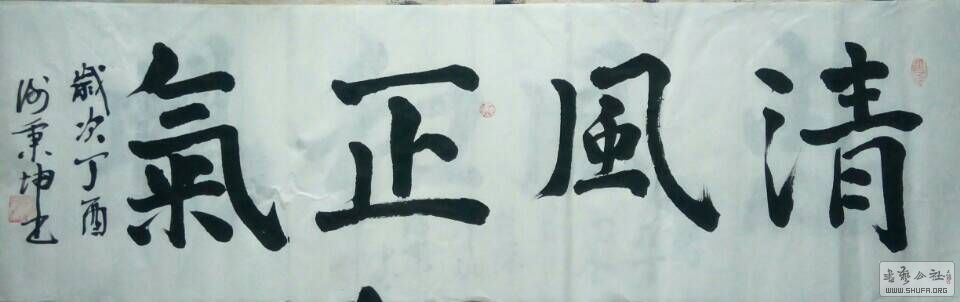 清風正氣
歲次丁酉
谢秉坤书
书艺公社
WWW.SHUFA.ORG